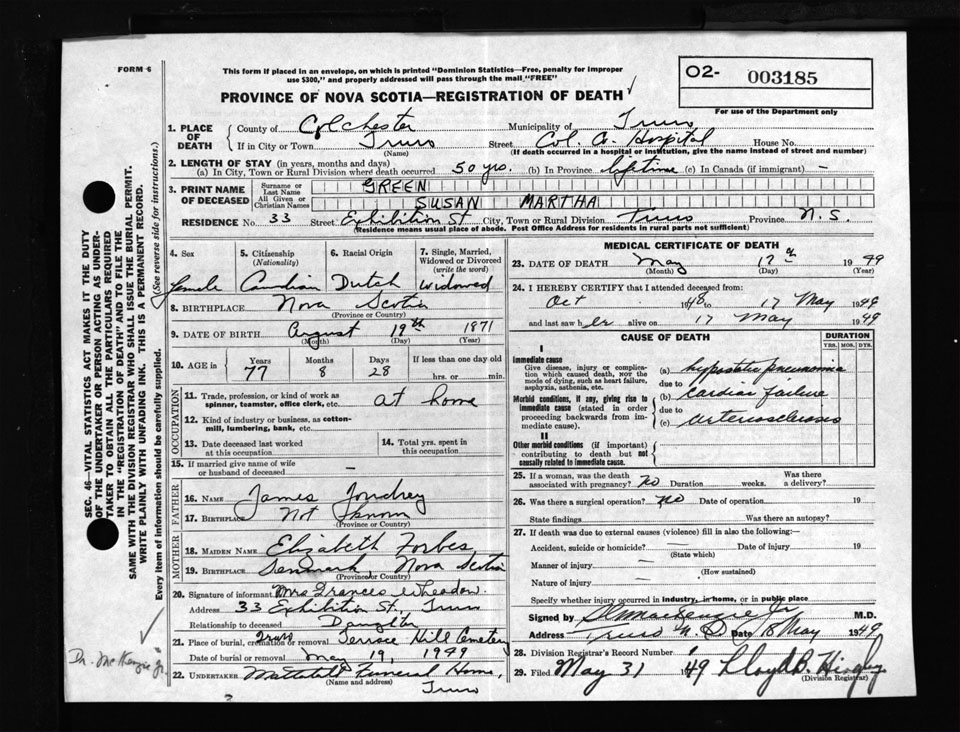 FORM 6
This form if placed in an envelope, on which is printed "Dominion Statistics—Free, penalty for improper
use $300," and properly addressed will pass through the mail "FREE"
PROVINCE OF NOVA SCOTIA—REGISTRATION OF DEATH
O2- 003185
For use of the Department only
SEC. 46—VITAL STATISTICS ACT MAKES IT THE DUTY
OF THE UNDERTAKER OR PERSON ACTING AS UNDER-
TAKER TO OBTAIN ALL THE PARTICULARS REQUIRED
IN THE "REGISTRATION OF DEATH" AND TO FILE THE
SAME WITH THE DIVISION REGISTRAR WHO SHALL ISSUE THE BURIAL PERMIT.
WRITE PLAINLY WITH UNFADING INK. THIS IS A PERMANENT RECORD.
Every item of information should be carefully supplied. (See reverse side for instructions.)
1. PLACE OF DEATH
County of Colchester Municipality of Truro
If in City or Town Truro Street Col. Co. Hospital House No.
(Name) (If death occurred in a hospital or institution, give the name instead of street and number)
2. LENGTH OF STAY (in years, months and days)
(a) In City, Town or Rural Division where death occurred 50 yrs. (b) In Province lifetime (c) In Canada (if immigrant) —
3. PRINT NAME OF DECEASED
Surname or Last Name GREEN
All Given or Christian Names SUSAN MARTHA
RESIDENCE No 33 Street Exhibition St City, Town or Rural Division Truro Province N.S.
(Residence means usual place of abode. Post Office Address for residents in rural parts not sufficient)
4. Sex 5. Citizenship (Nationality) 6. Racial Origin 7. Single, Married, Widowed or Divorced (write the word)
female Canadian Dutch Widowed
8. BIRTHPLACE Nova Scotia
(Province or Country)
9. DATE OF BIRTH August 19th 1871
(Month) (Day) (Year)
10. AGE in Years 77 Months 8 Days 28 If less than one day old
hrs. or min.
OCCUPATION
11. Trade, profession, or kind of work as
spinner, teamster, office clerk, etc. at home
12. Kind of industry or business, as cotton-
mill, lumbering, bank, etc.
13. Date deceased last worked
at this occupation
14. Total yrs. spent in
this occupation
15. If married give name of wife
or husband of deceased —
FATHER
16. NAME James
17. BIRTHPLACE Not Known
(Province or Country)
MOTHER
18. MAIDEN NAME Elizabeth Forbes
19. BIRTHPLACE Nova Scotia
(Province or Country)
20. Signature of informant Mrs Frances Wheadon
Address 33 Exhibition St., Truro
Relationship to deceased Daughter
21. Place of burial, cremation or removal Truro Terrace Hill Cemetery
Date of burial or removal May 19, 1949
22. UNDERTAKER Mattatall Funeral Home,
(Name and address) Truro
Dr. McKenzie Jr.
MEDICAL CERTIFICATE OF DEATH
23. DATE OF DEATH May 17th 1949
(Month) (Day) (Year)
24. I HEREBY CERTIFY that I attended deceased from:
Oct 1948, to 17 May 1949
and last saw her alive on 17 May 1949
CAUSE OF DEATH DURATION
YRS. MOS. DYS.
I
Immediate cause
Give disease, injury or complica-
tion which caused death, NOT the
mode of dying, such as heart failure,
asphyxia, asthenia, etc.
(a) hypostatic pneumonia
due to
Morbid conditions, if any, giving rise to
immediate cause (stated in order
proceeding backwards from im-
mediate cause).
(b) cardiac failure
due to
(c) arteriosclerosis
II
Other morbid conditions (if important)
contributing to death but not
causally related to immediate cause.
25. If a woman, was the death
associated with pregnancy? no Duration weeks. Was there
a delivery?
26. Was there a surgical operation? no Date of operation 19
State findings Was there an autopsy?
27. If death was due to external causes (violence) fill in also the following:
Accident, suicide or homicide? Date of injury 19
(State which)
Manner of injury —
(How sustained)
Nature of injury —
Specify whether injury occurred in industry, in home, or in public place
Signed by MacKenzie Jr M.D.
Address Truro N.S. Date 18 May 1949
28. Division Registrar's Record Number
29. Filed May 31 1949 Lloyd B.
(Division Registrar)